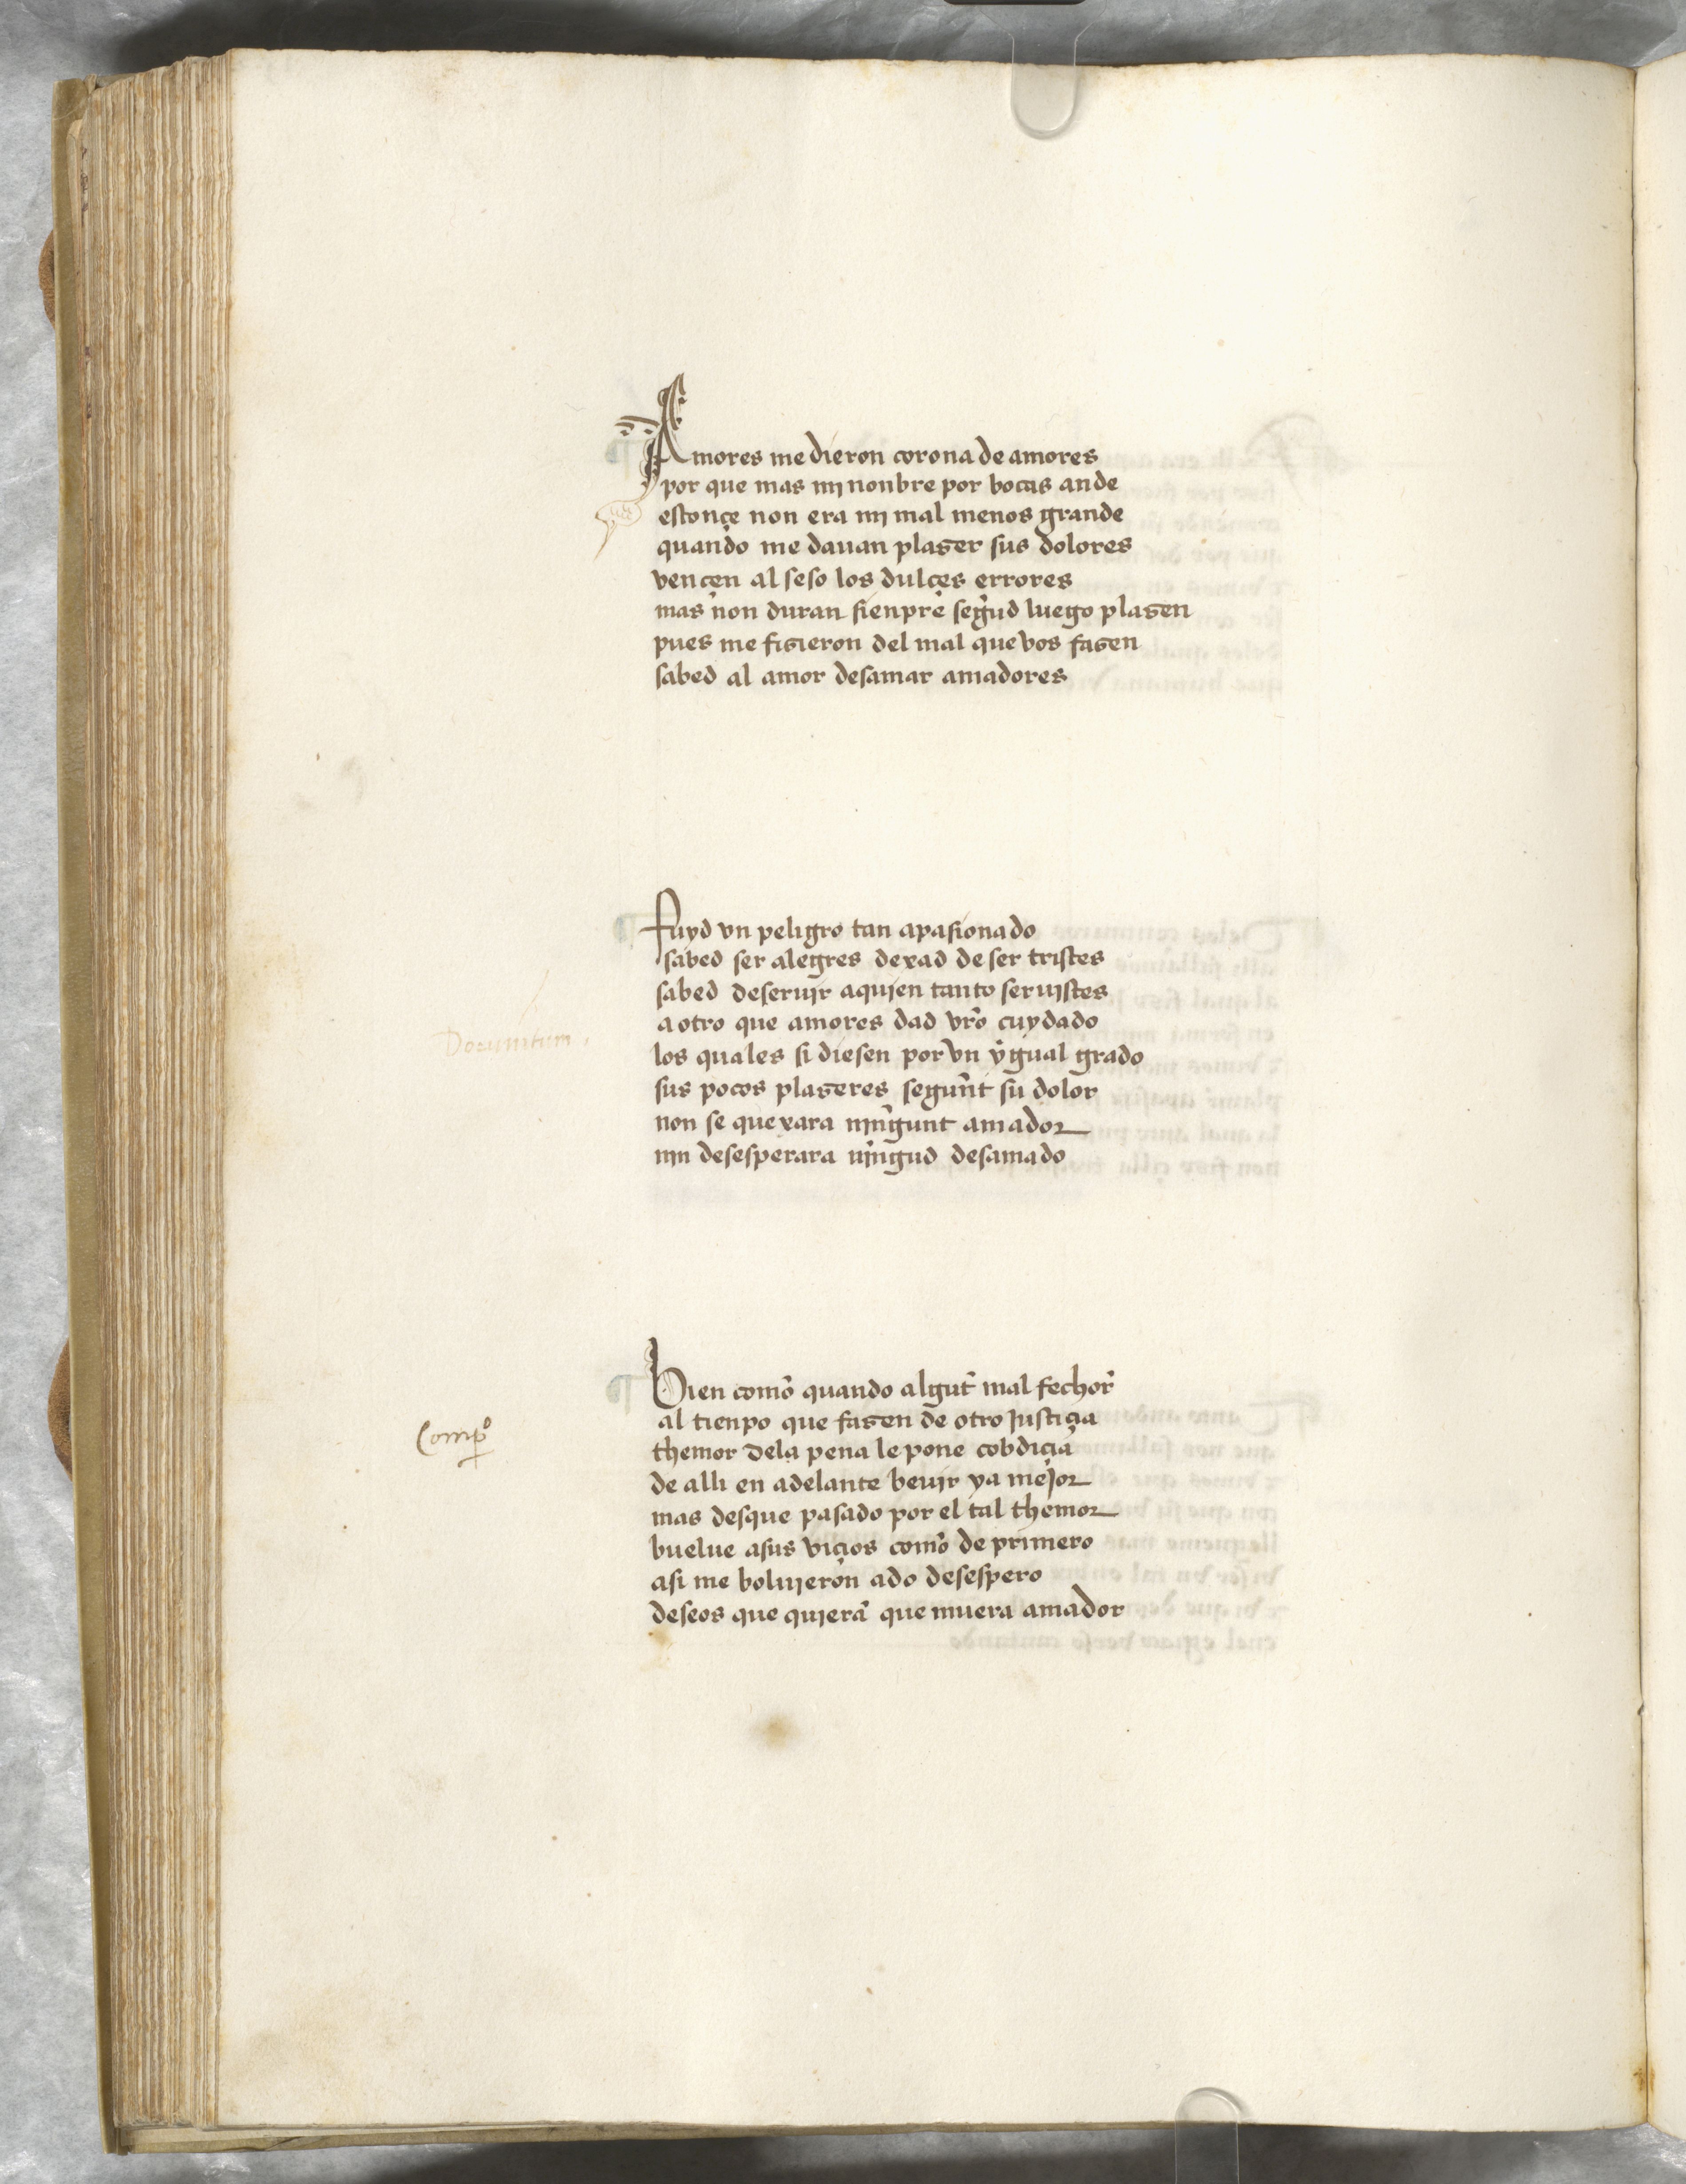 Amores me dieron corona de amores
por que mas mi nonbre por bocas ande
estonçe non era mi mal menos grande
quando me dauan plaser sus dolores
vençen al seso los dulçes errores
mas non duran sienpre segud luego plasen
pues me fisieron del mal que vos fasen
sabed al amor desamar amadores
Fuyd vn peligro tan apasionado
sabed ser alegres dexad de ser tristes
sabed deseruir aquien tanto seruistes
a otro que amores dad vr̃o cuydado
los quales si diesen por vn ygual grado
sus pocos plaseres segũt su dolor
non se quexara ningunt amador
nin desesperara ningud desamado
Documtum
Bien como quando algũt mal fechor
al tienpo que fasen de otro justiçia
Comp̱o
themor dela pena le pone cobdiçia
de alli en adelante beuir ya mejor
mas desque pasado por el tal themor
buelue asus viçios como de primero
asi me boluieron ado desespero
deseos que quierã que muera amador